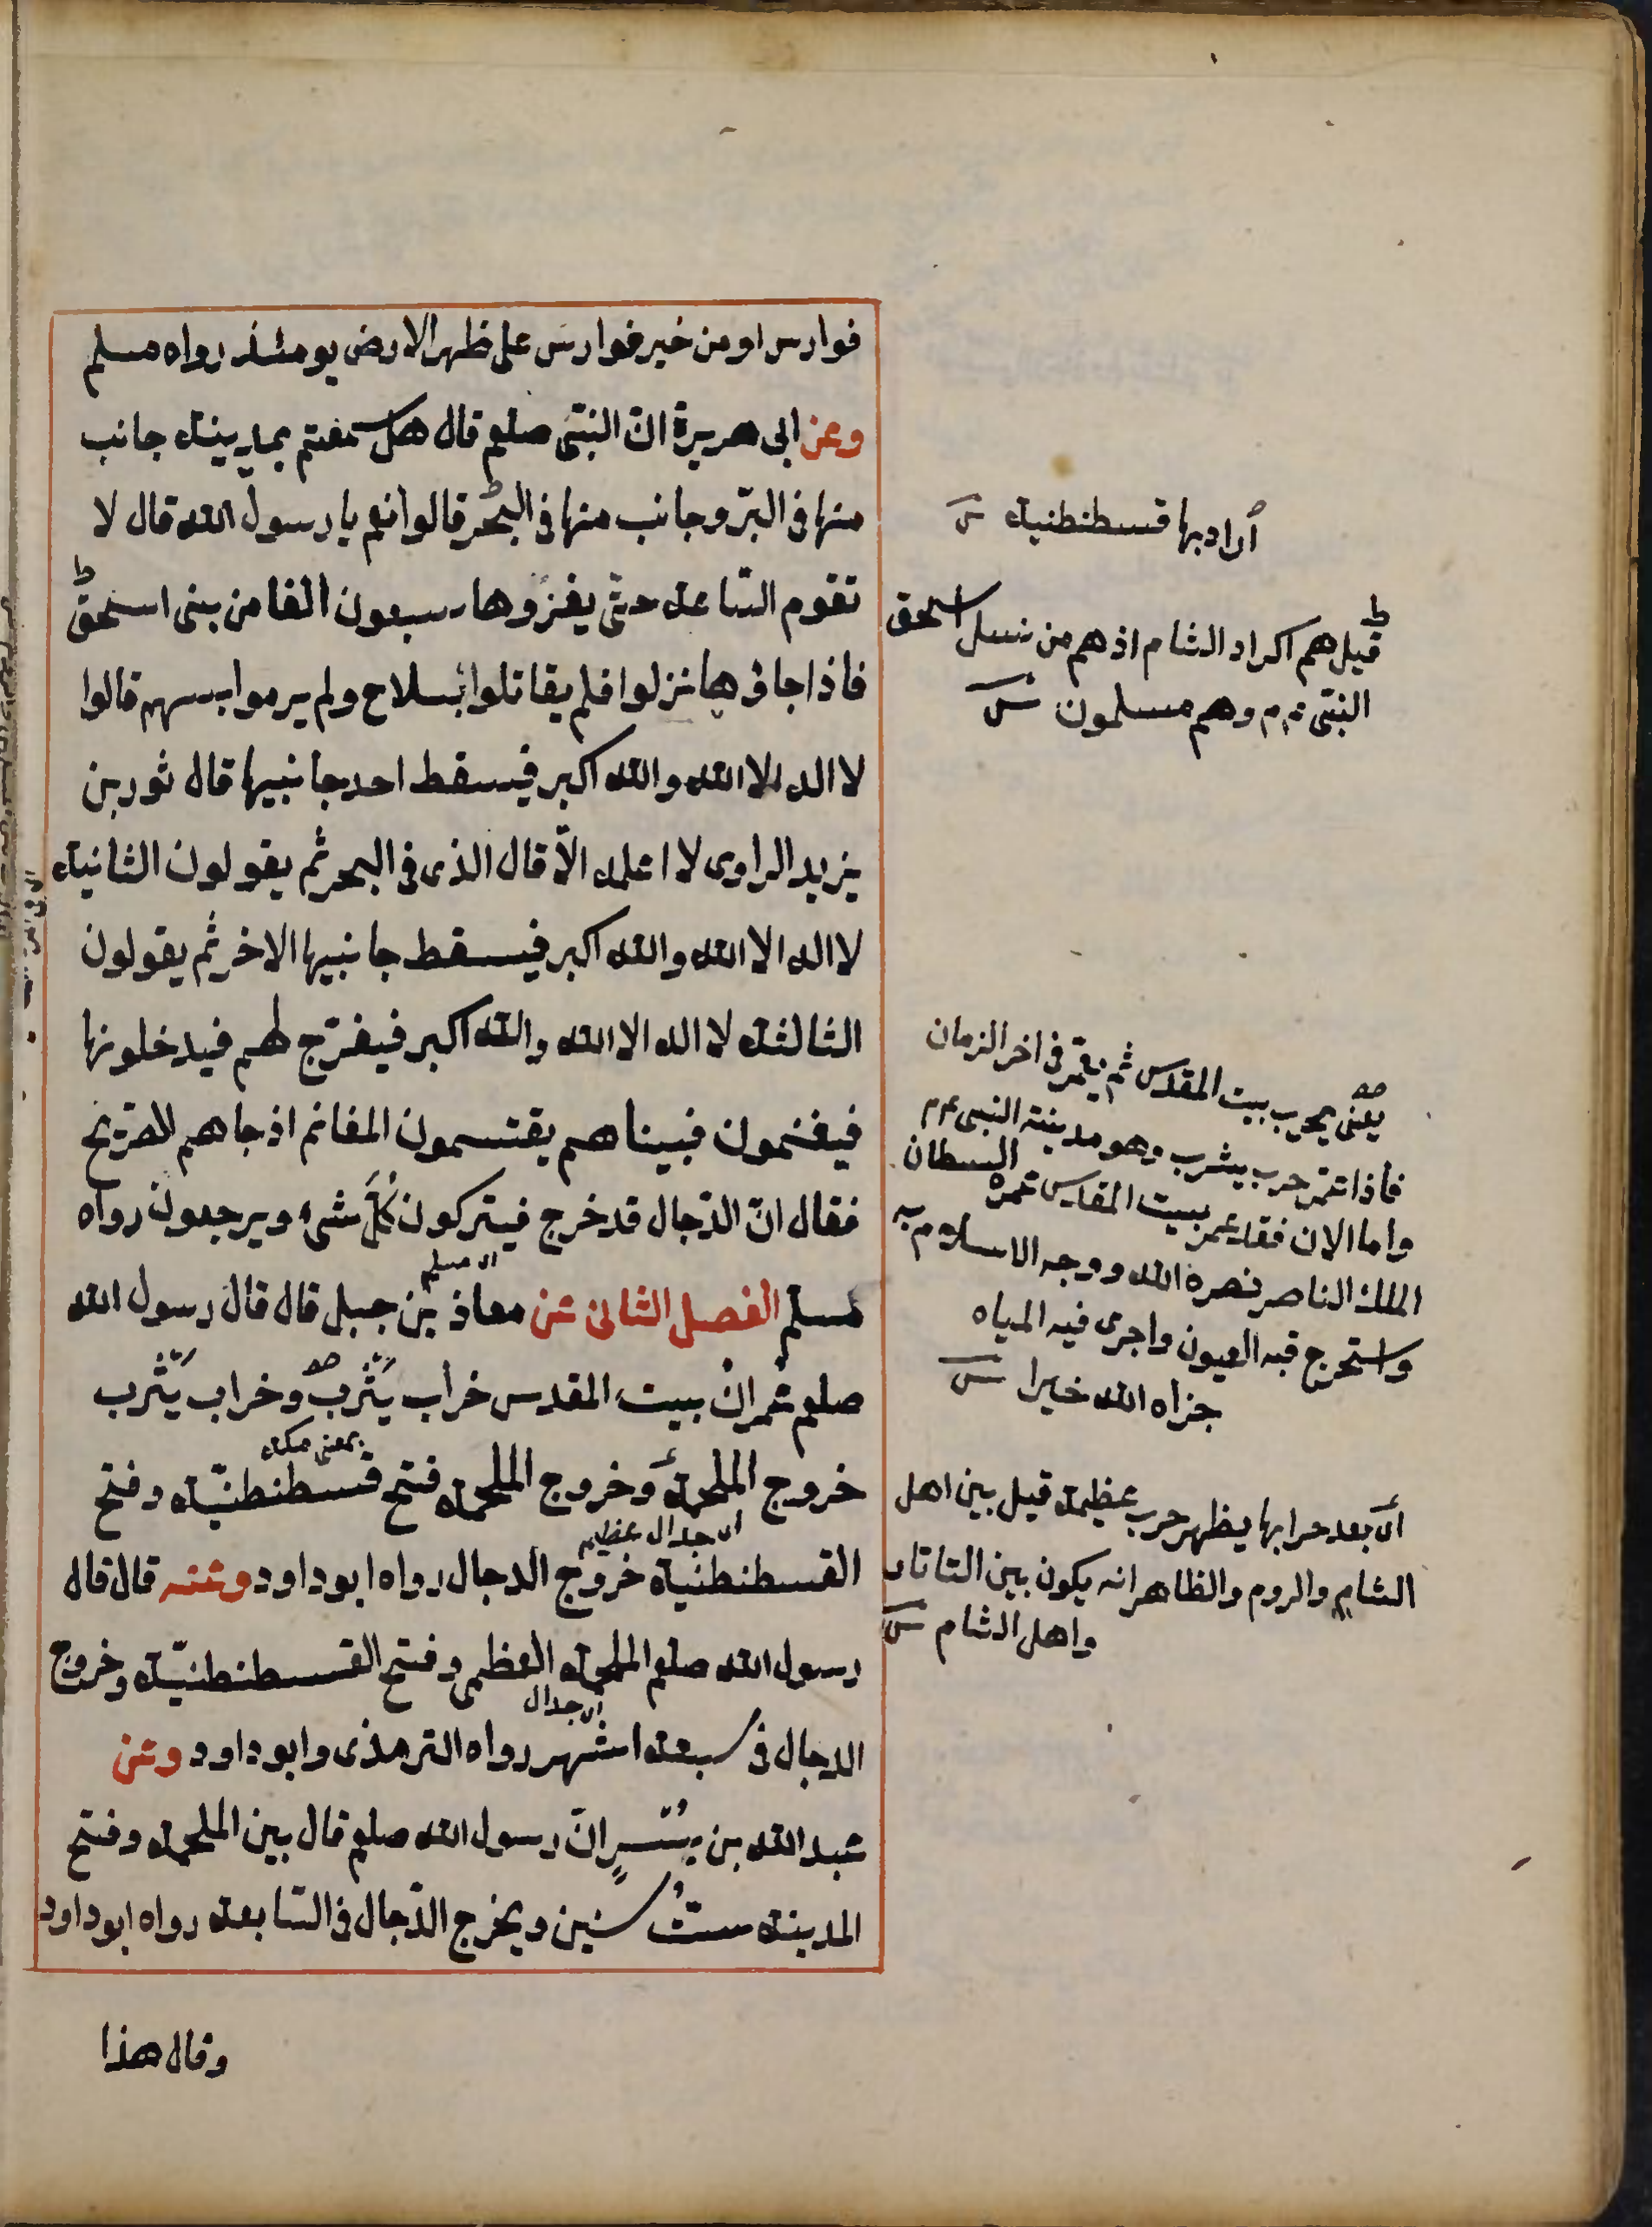 فوارس او من خير فوارس على ظهر الارض يومئذ رواه مسلم
وعن ابى هريرة انّ النبّى صلعم قال هل سمعتم بمدينة جانب
منها فى البرّ وجانب منها فى البحر قالوا نعم يا رسول الله قال لا
تقوم السّاعة حتّى يغزُوها سبعون الفا من بنى اسحقَ
فاذا جاؤها نزلوا فلم يقاتلوا بسلاح ولم يرموا بسهم قالوا
لا اله الا الله والله اكبر فيسقط احد جانبيها قال ثور بن
يزيد الراوى لا اعلمه الاّ قال الذى فى البحر ثم يقولون الثانية
لا اله الا الله والله اكبر فيسقط جانبيها الاخر ثم يقولون
الثالثة لا اله الا الله والله اكبر فيفرّج لهم فيدخلونها
فيغنمون فبيناهم يقتسمون المغانم اذ جاهم الصّريخ
فقال انّ الدّجال قد خرج فيتركون كُلَّ شىء ويرجعون رواه
مسلم الفصل الثانى عن معاذ بن جبل قال قال رسول الله
صلعم عُمران بيت المقدس خراب يَثْرب وخراب يَثْرب
بمعنى مكة
خروج الملحمة وخروج الملحمة فتح قسطنطنيّة وفتح
القسطنطنية خروج الدجال رواه ابو داود وعنه قال قال
رسول الله صلعم الملحمة العظمى وفتح القسطنطنيّة وخروج
الدجال فى سبعة اشهر رواه الترمذى وابو داود وعن
عبد الله بن بُسْرٍ انّ رسول الله صلعم قال بين الملحمة وفتح
المدينة ستُّ سنين ويخرج الدّجال فى السّابعة رواه ابو داود
وقال هذا
اراد بها قسطنطنية
قيل هم اكراد الشام اذ هم من نسل اسحق
النبّى عم م وهم مسلمون
يعنى يخرب بيت المقدس ثم يعمر فى اخر الزمان
فاذا عمر خرب يثرب وهو مدينة النبى عم م
واما الان فقد عمر بيت المقدس عمره السطان
الملك الناصر نصره الله ووجه الاسلام به
واستخرج فيه العيون واجرى فيه المياه
جزاه الله خيرا
اى بعد خرابها يظهر حرب عظيمة قيل بين اهل
الشام والروم والظاهر انه يكون بين التاتار
واهل الشام